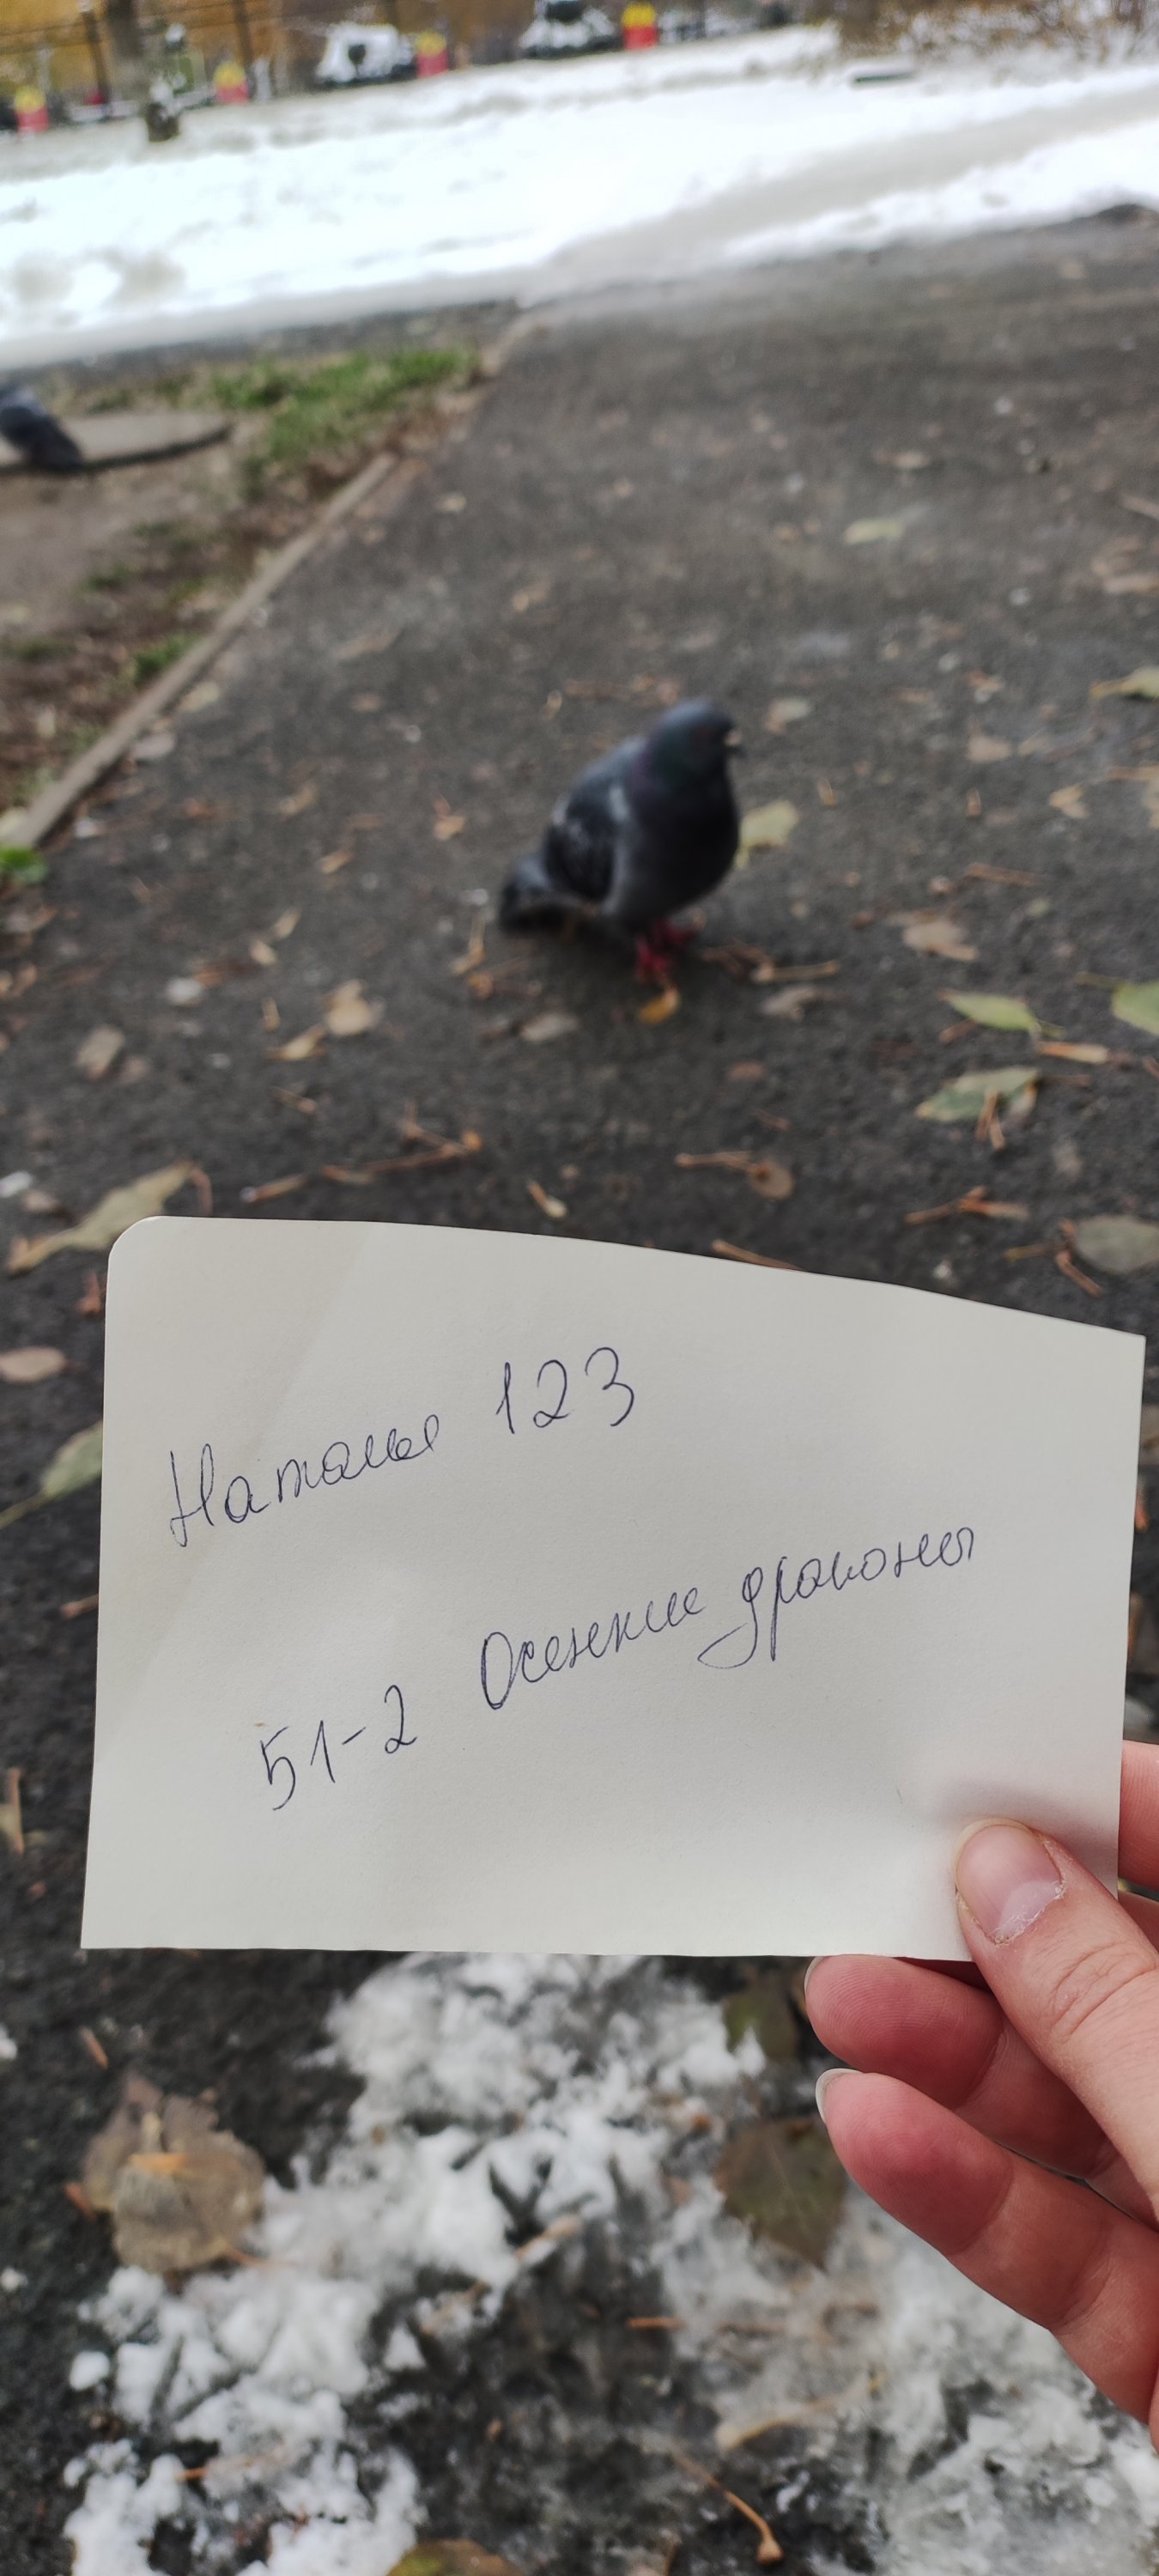 Наталья 123
51-2 Осенние драконы